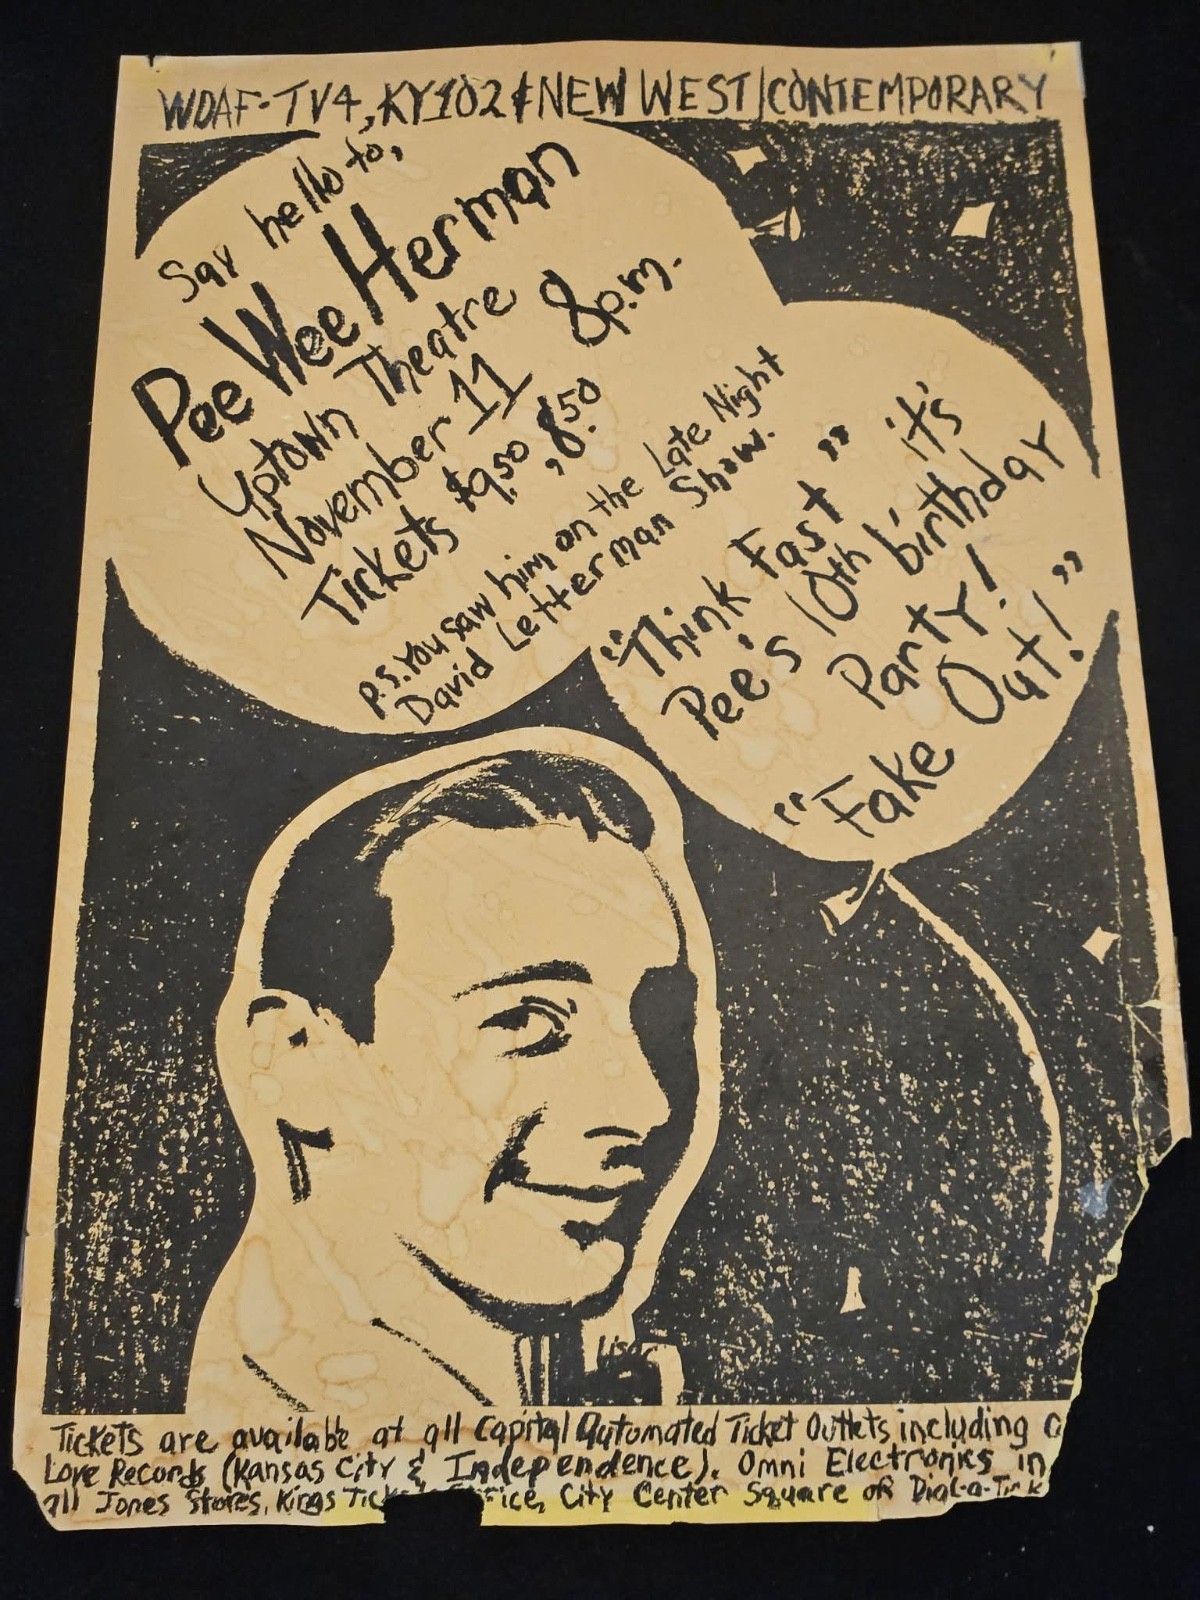 WDAF-TV4, KY102 & NEW WEST/CONTEMPORARY
Say hello to,
Pee Wee Herman
Uptown Theatre
November 11 8p.m.
Tickets $9.50, 8.50
P.S. You saw him on the Late Night
David Letterman Show.
"Think Fast" it's
Pee's 10th birthday
Party!
"Fake Out!"
Lisa
Tickets are available at all Capital Automated Ticket Outlets including
Love Records (Kansas City & Independence). Omni Electronics in
all Jones Stores, Kings City Center Square or Dial-a-Tick